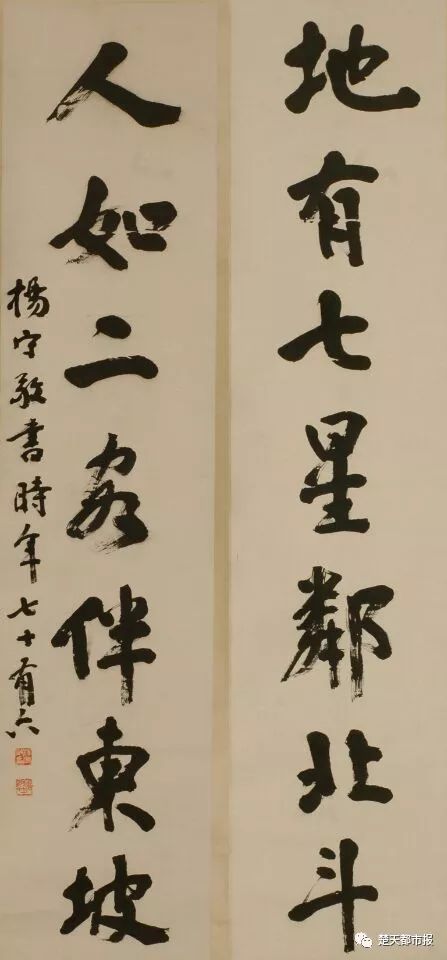 地有七星鄰北斗
人如二客伴東坡
楊守敬書時年七十有六
楚天都市报